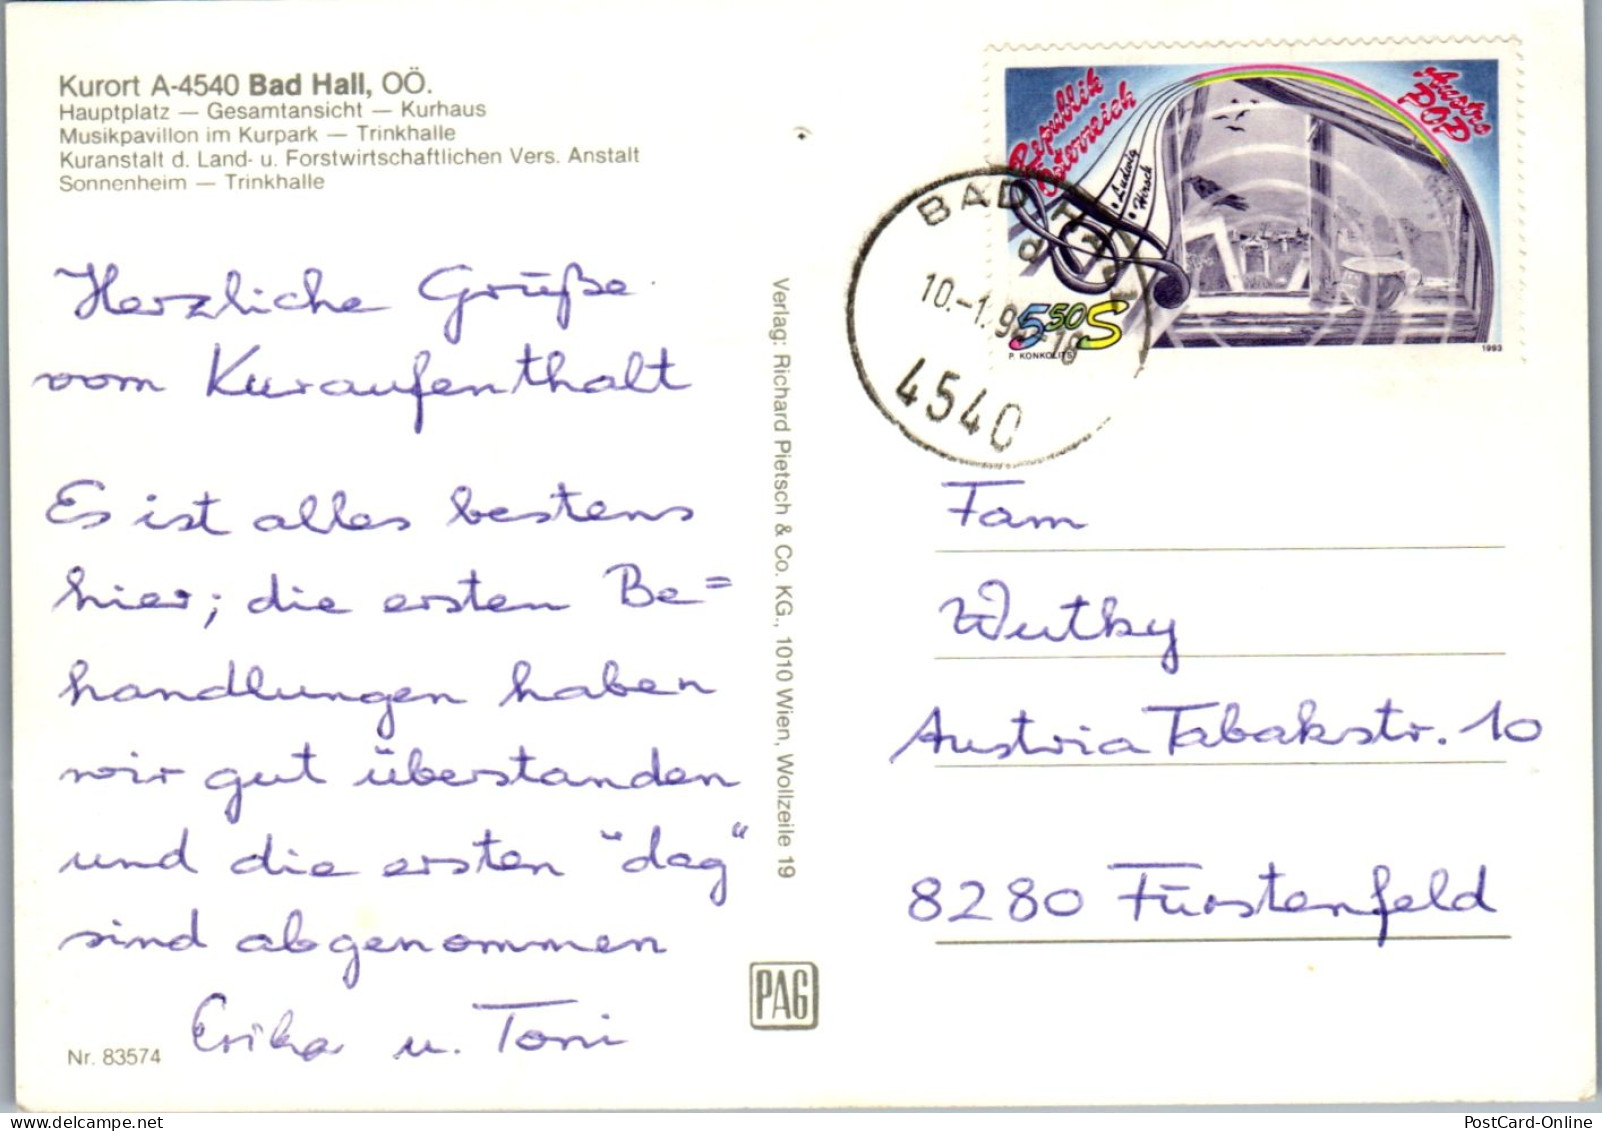 Kurort A-4540 Bad Hall, OÖ.
Hauptplatz — Gesamtansicht — Kurhaus
Musikpavillon im Kurpark — Trinkhalle
Kuranstalt d. Land- u. Forstwirtschaftlichen Vers. Anstalt
Sonnenheim — Trinkhalle
Herzliche Grüße
vom Kuraufenthalt
Es ist alles bestens
hier; die ersten Be=
handlungen haben
wir gut überstanden
und die ersten "dag"
sind abgenommen
Erika u. Toni
Nr. 83574
Verlag: Richard Pietsch & Co. KG., 1010 Wien, Wollzeile 19
PAG
Republik
Österreich
Austro
POP
Ludwig
Hirsch
5.50 S
P. KONKOLITS
1993
BAD HALL
d
10.-1.9
-18
4540
Fam
Wutky
Austria Tabakstr. 10
8280 Fürstenfeld
PostCard-Online